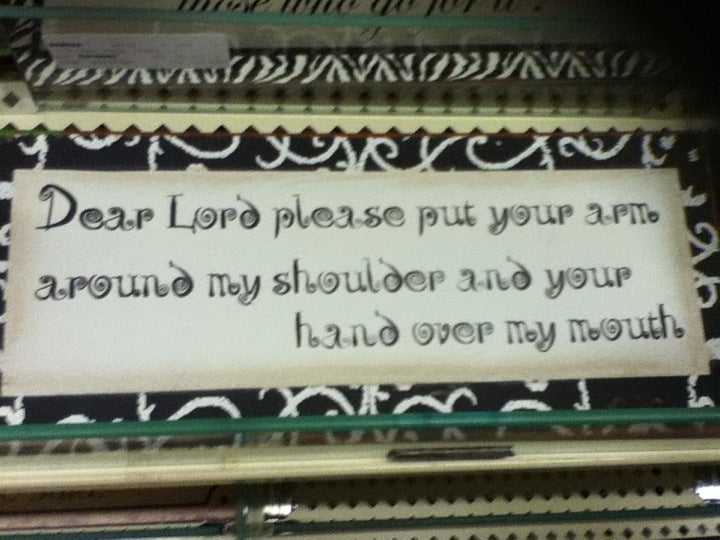 those who go for it.
Dear Lord please put your arm
around my shoulder and your
hand over my mouth